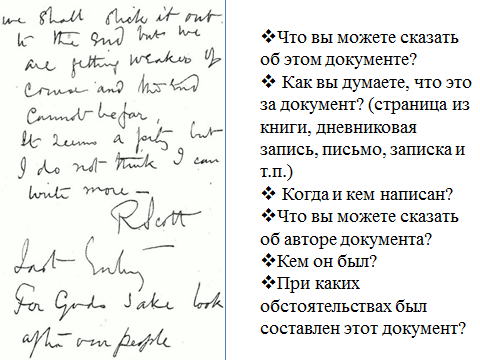 we shall stick it out
to the end but we
are getting weaker of
course and the end
cannot be far,
It seems a pity but
I do not think I can
write more —
R Scott
Last Entry
For Gods sake look
after our people
❖Что вы можете сказать
об этом документе?
❖ Как вы думаете, что это
за документ? (страница из
книги, дневниковая
запись, письмо, записка и
т.п.)
❖ Когда и кем написан?
❖Что вы можете сказать
об авторе документа?
❖Кем он был?
❖При каких
обстоятельствах был
составлен этот документ?